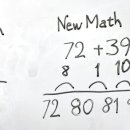 New Math
72 + 39
8 1 10
72 80 81 9